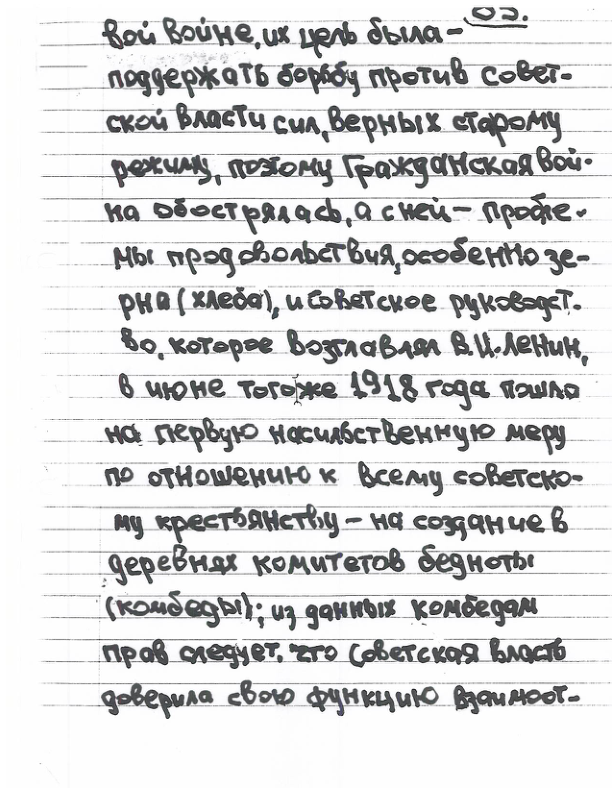 85.
вой войне, их цель была –
поддержать борьбу против совет-
ской власти сил, верных старому
режиму, поэтому Гражданская вой-
на обострялась, а с ней – пробле-
мы продовольствия, особенно зе-
рна (хлеба), и советское руководст-
во, которое возглавлял В.И. Ленин,
в июне того же 1918 года пошла
на первую насильственную меру
по отношению к всему советско-
му крестьянству – на создание в
деревнях комитетов бедноты
(комбеды); из данных комбедам
прав следует, что Советская власть
доверила свою функцию взаимоот-